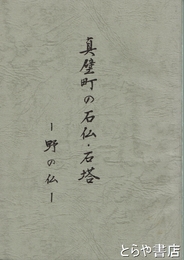 真壁町の石仏・石塔
―野の仏―
とらや書店